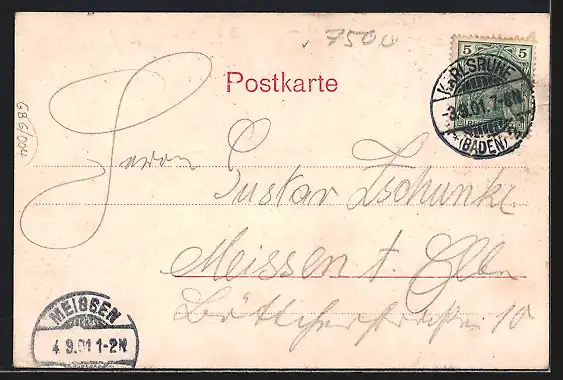 7500
5 5
KARLSRUHE
3.9.01.7-8N
(BADEN)
Postkarte
GB 6/004
Herrn Gustav Zschunke
Meissen a. Elbe
Böttcherstraße 10
MEISSEN
4.9.01 1-2N